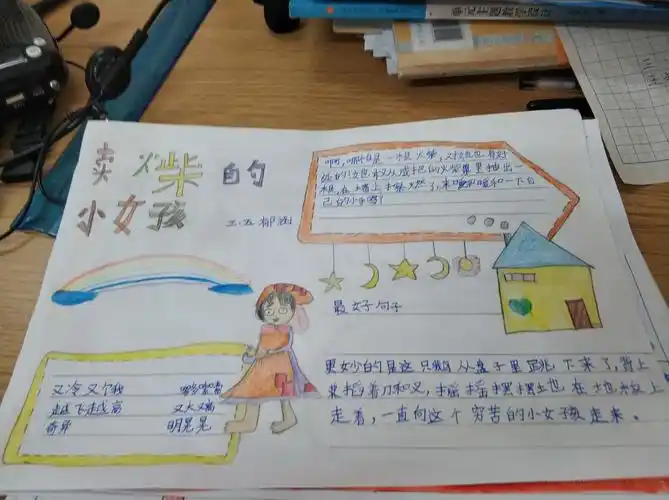 卖火柴的
小女孩
三.五 郁
啊,哪怕是一根火柴,对她也有好
处的!她敢从成把的火柴里抽出
一根,在墙上擦燃了,来暖和暖和一下自
己的小手吗?
最好句子
又冷又饿 哆哆嗦嗦
越飞越高 又大又
奇异 明晃晃
更妙的是这只鹅从盘子里跳下来了,背上
插着刀和叉,摇摇摆摆地在地板上
走着,一直向这个穷苦的小女孩走来。